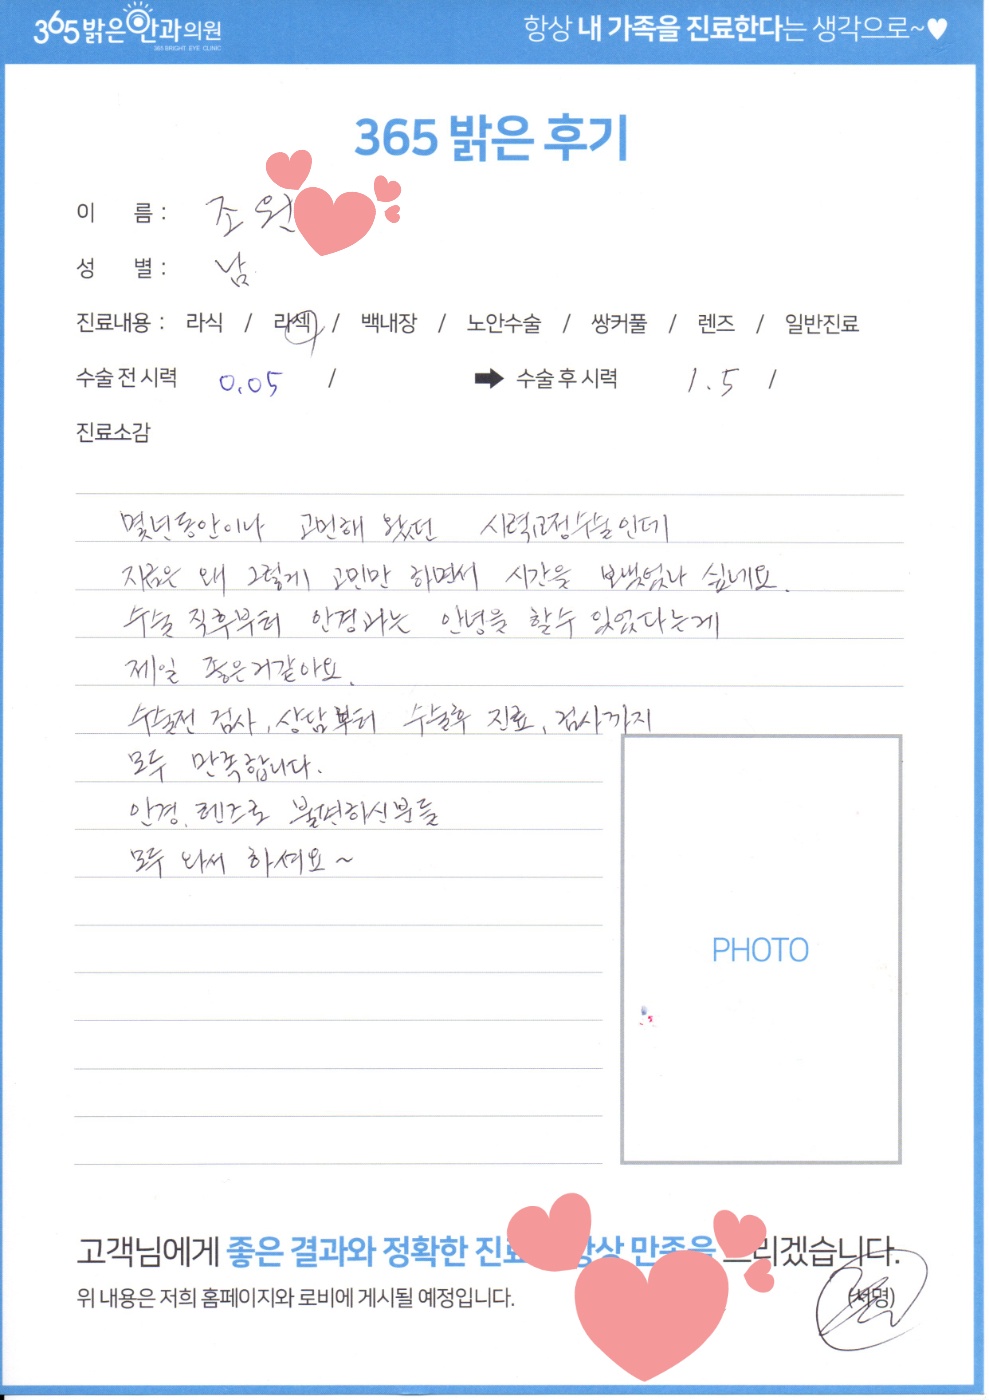 365밝은안과의원
365 BRIGHT EYE CLINIC
항상 내 가족을 진료한다는 생각으로~♥
365 밝은 후기
이 름 : 조 원
성 별 : 남
진료내용 : 라식 / 라섹 / 백내장 / 노안수술 / 쌍커풀 / 렌즈 / 일반진료
수술 전 시력 0.05 / ➡ 수술 후 시력 1.5 /
진료소감
몇년동안이나 고민해 왔던 시력교정수술인데
지금은 왜 그렇게 고민만 하면서 시간을 보냈었나 싶네요.
수술 직후부터 안경과는 안녕을 할수 있었다는게
제일 좋은거같아요.
수술전 검사, 상담부터 수술후 진료, 검사까지
모두 만족합니다.
안경, 렌즈로 불편하신분들
모두 와서 하셔요~
PHOTO
고객님에게 좋은 결과와 정확한 진료 항상 만족을 드리겠습니다.
위 내용은 저희 홈페이지와 로비에 게시될 예정입니다.
(서명)